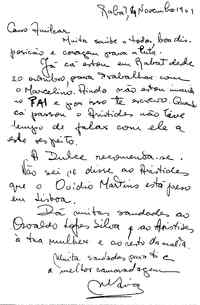 Rabat, 24 Novembro 1961
Caro Amílcar
Muita saúde e toda boa dis-
posição e coragem para a luta.
Já cá estou em Rabat desde
20 outubro, para trabalhar com
o Marcelino. Ainda não estou
no PAI e por isso te escrevo. Quando
cá passou o Aristides não teve
tempo de falar com ele a
este respeito.
A Dulce recomenda-se.
Não sei se disse ao Aristides
que o Ovídio Martins está preso
em Lisboa.
Dá muitas saudades ao
Osvaldo Lopes Silva e ao Aristides
à tua mulher e ao resto da malta
Muitas saudades para ti e
a melhor camaradagem